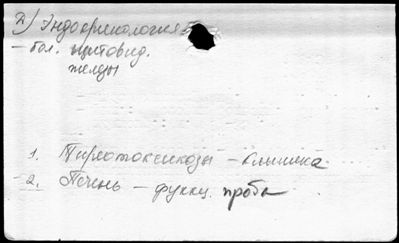 2) Эндокринология
- бол. щитовид.
железы
1. Тиреотоксикозы - клиника.
2. Печень - функц. пробы